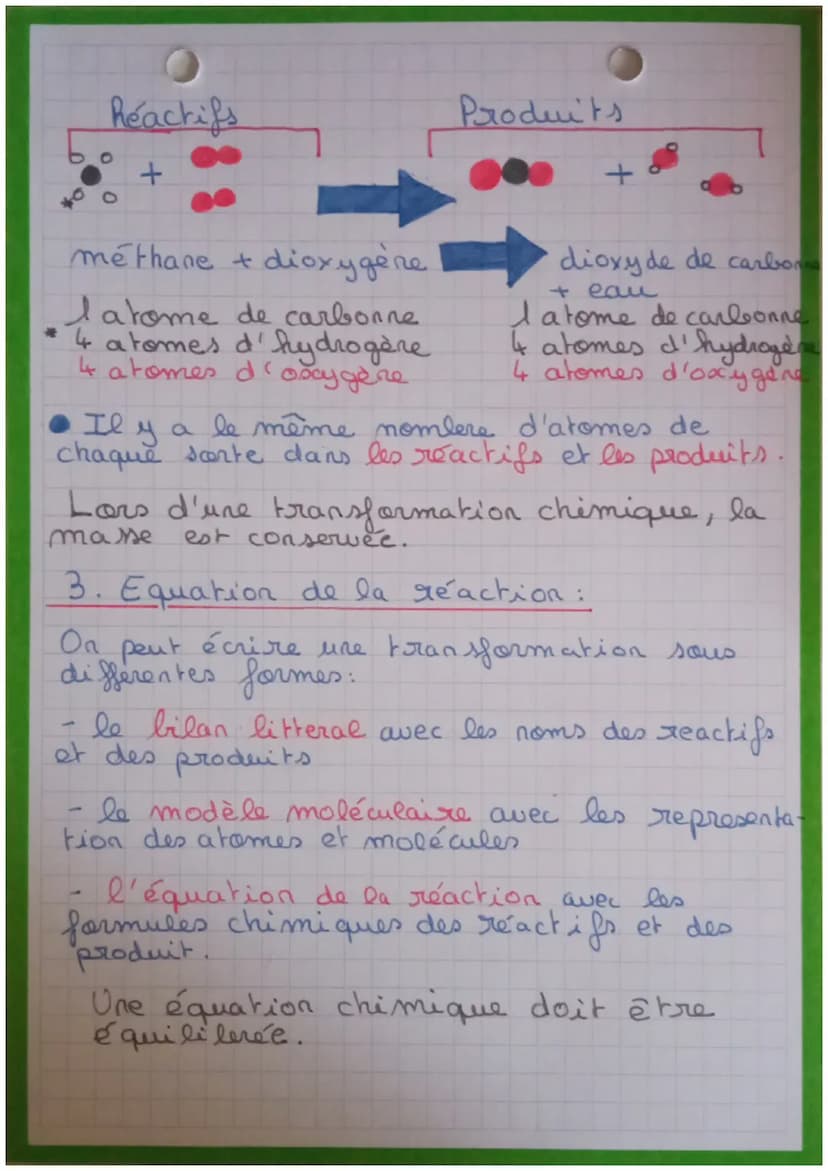 Réactifs Produits
+ +
*
méthane + dioxygène dioxyde de carbone
+ eau
1 atome de carbonne 1 atome de carbonne
* 4 atomes d'hydrogène 4 atomes d'hydrogène
4 atomes d'oxygène 4 atomes d'oxygène
• Il y a le même nombre d'atomes de
chaque sorte dans les réactifs et les produits.
Lors d'une transformation chimique, la
masse est conservée.
3. Equation de la réaction :
On peut écrire une transformation sous
différentes formes:
- le bilan litteral avec les noms des reactifs
et des produits
- le modèle moléculaire avec les representa-
tion des atomes et molécules
- l'équation de la réaction avec les
formules chimiques des réactifs et des
produit.
Une équation chimique doit être
équilibrée.